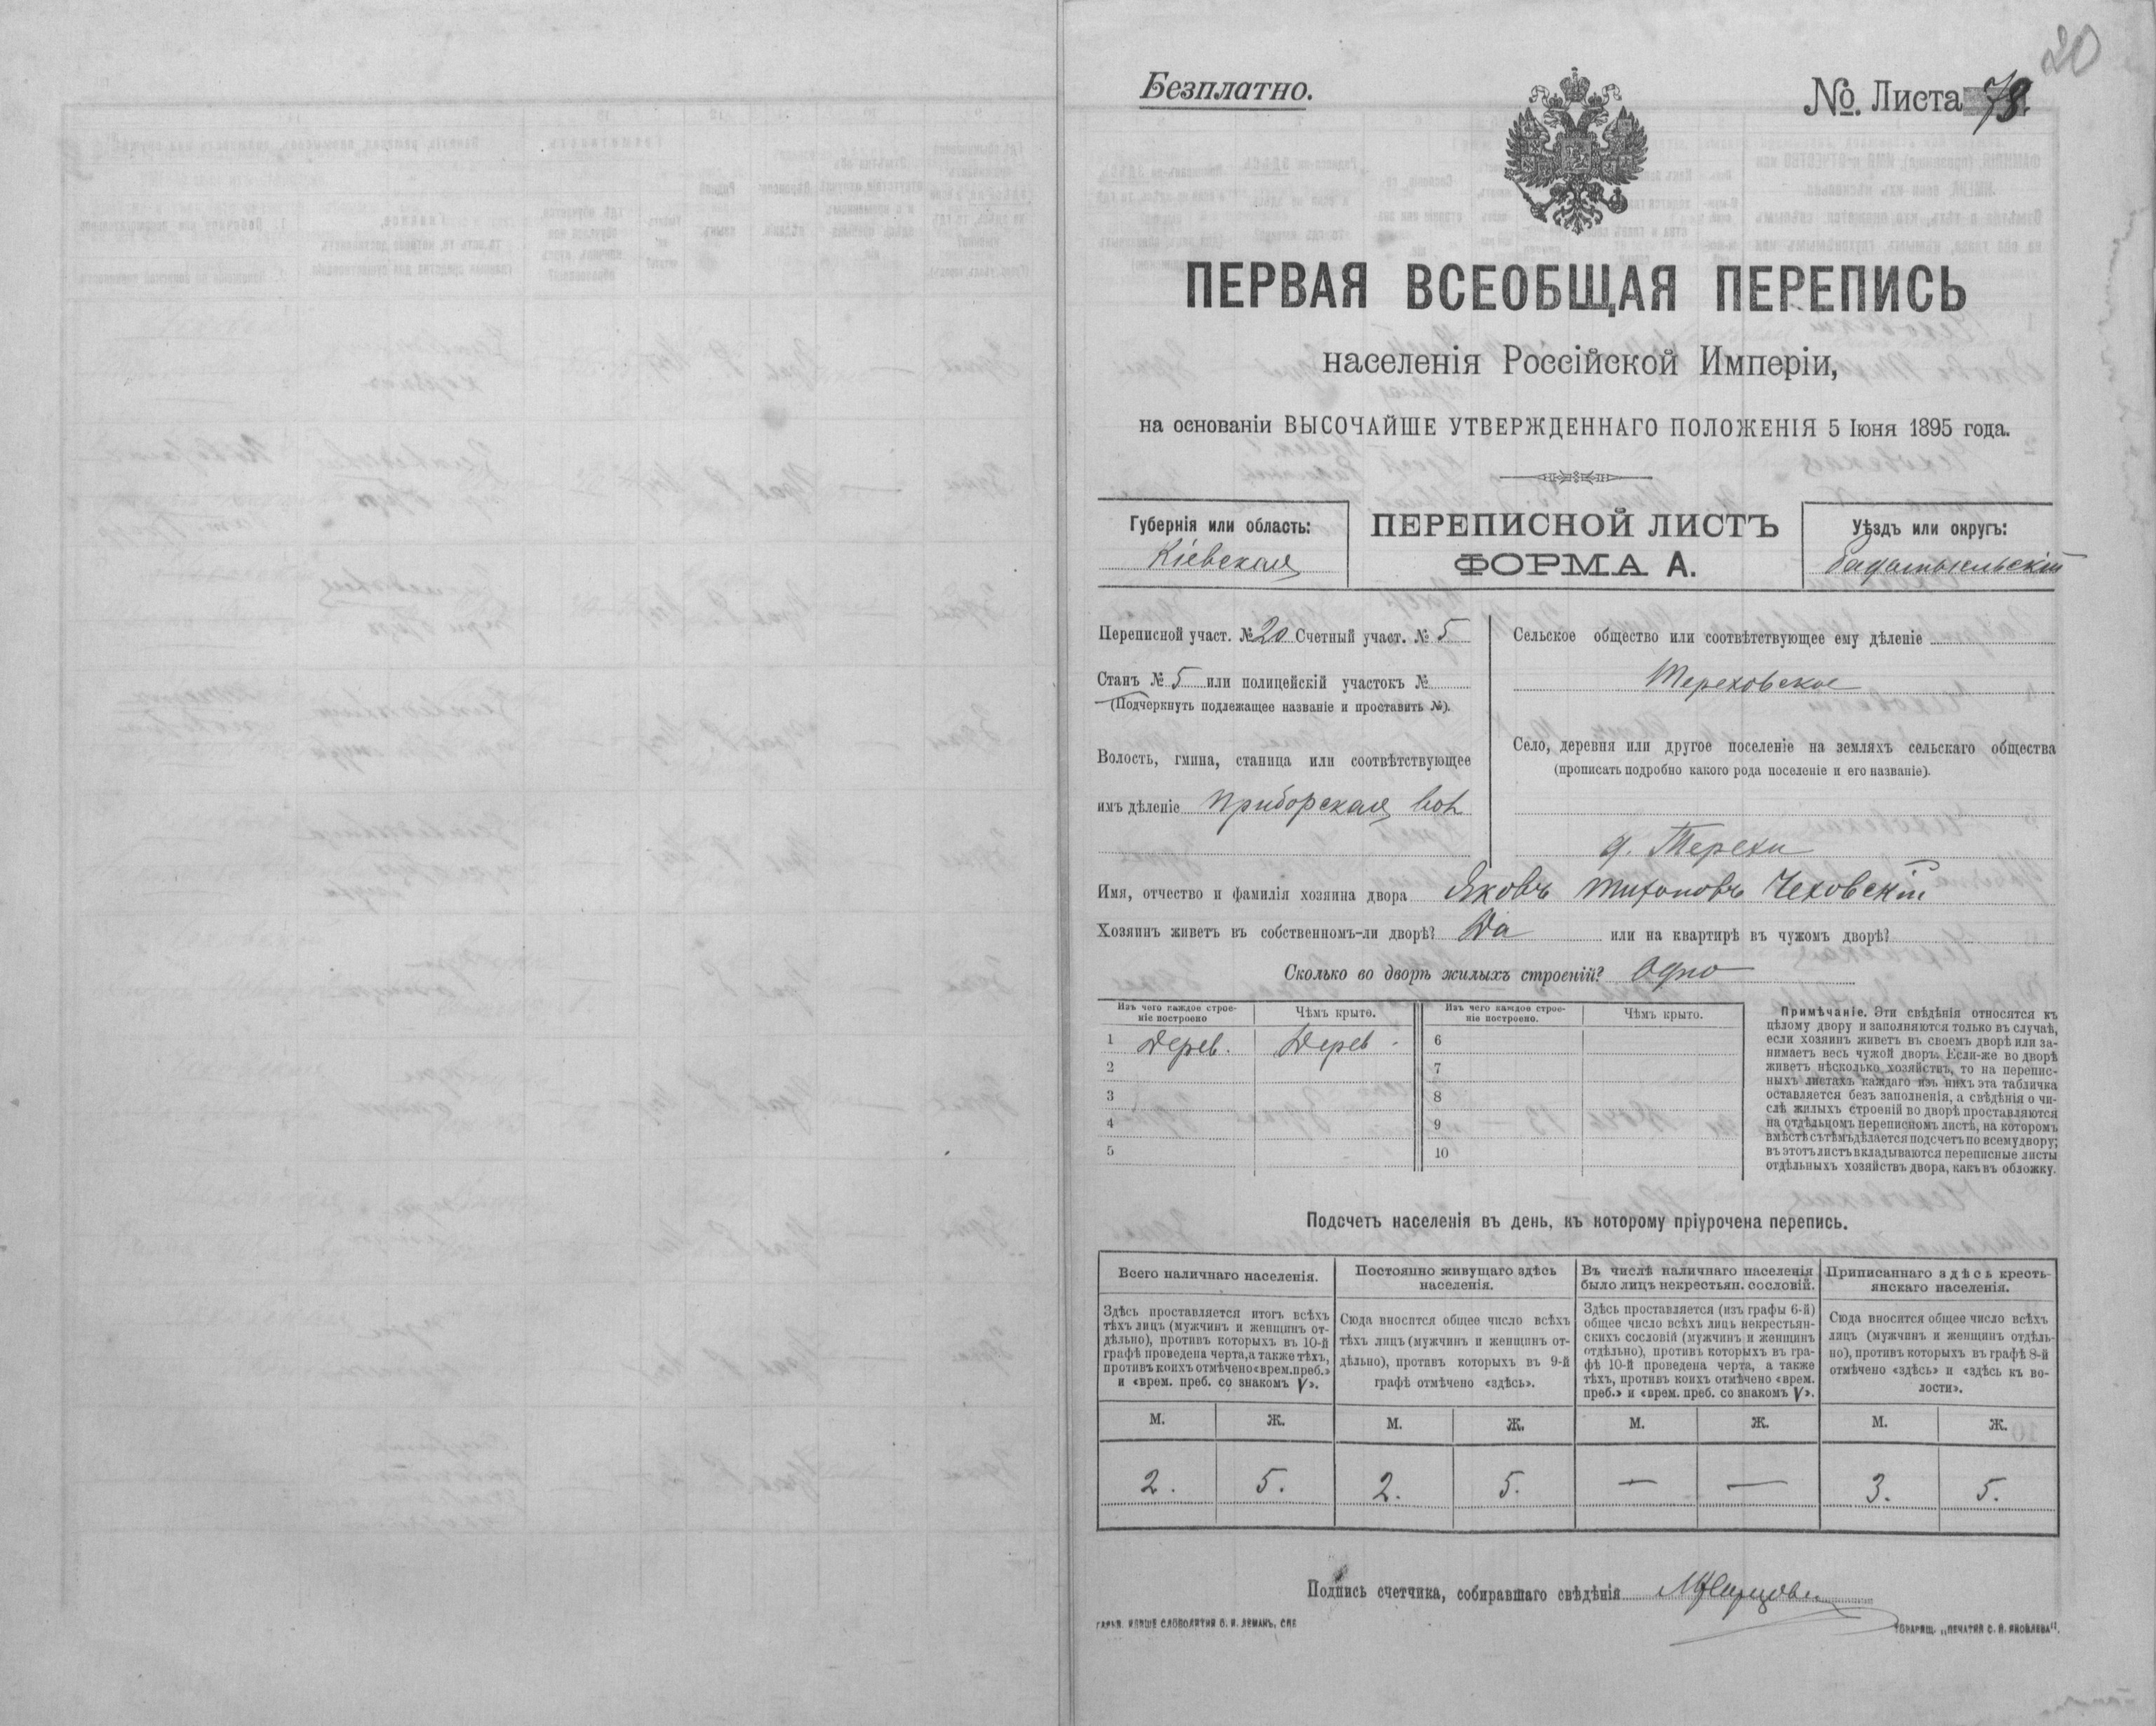 20
Безплатно.
№. Листа 78.
ПЕРВАЯ ВСЕОБЩАЯ ПЕРЕПИСЬ
населенія Россійской Имперіи,
на основаніи ВЫСОЧАЙШЕ УТВЕРЖДЕННАГО ПОЛОЖЕНІЯ 5 Іюня 1895 года.
Губернія или область:
Кіевская
ПЕРЕПИСНОЙ ЛИСТЪ
ФОРМА А.
Уѣздъ или округъ:
Переписной участ. № 20 Счетный участ. № 5
Станъ № 5 или полицейскій участокъ №
(Подчеркнуть подлежащее названіе и проставить №).
Волость, гмина, станица или соотвѣтствующее
имъ дѣленіе Приборская вол
Сельское общество или соотвѣтствующее ему дѣленіе
Тереховское
Село, деревня или другое поселеніе на земляхъ сельскаго общества
(прописать подробно какого рода поселеніе и его названіе).
д. Терехи
Имя, отчество и фамилія хозяина двора Яковъ Тихоновъ Чеховскій
Хозяинъ живетъ въ собственномъ-ли дворѣ? Да или на квартирѣ въ чужомъ дворѣ?
Сколько во дворѣ жилыхъ строеній? Одно
Изъ чего каждое строе-
ніе построено
Чѣмъ крыто.
Изъ чего каждое строе-
ніе построено.
Чѣмъ крыто.
1 Дерев. Дерев. 6
2 7
3 8
4 9
5 10
Примѣчаніе. Эти свѣдѣнія относятся къ
цѣлому двору и заполняются только въ случаѣ,
если хозяинъ живетъ въ своемъ дворѣ или за-
нимаетъ весь чужой дворъ. Если-же во дворѣ
живетъ нѣсколько хозяйствъ, то на перепис-
ныхъ листахъ каждаго изъ нихъ эта табличка
оставляется безъ заполненія, а свѣдѣнія о чи-
слѣ жилыхъ строеній во дворѣ проставляются
на отдѣльномъ переписномъ листѣ, на которомъ
вмѣстѣ съ тѣмъ дѣлается подсчетъ по всему двору;
въ этотъ листъ вкладываются переписные листы
отдѣльныхъ хозяйствъ двора, какъ въ обложку.
Подсчетъ населенія въ день, къ которому пріурочена перепись.
Всего наличнаго населенія.
Здѣсь проставляется итогъ всѣхъ
тѣхъ лицъ (мужчинъ и женщинъ от-
дѣльно), противъ которыхъ въ 10-й
графѣ проведена черта, а также тѣхъ,
противъ коихъ отмѣчено «врем. преб.»
и «врем. преб. со знакомъ V».
Постоянно живущаго здѣсь
населенія.
Сюда вносится общее число всѣхъ
тѣхъ лицъ (мужчинъ и женщинъ от-
дѣльно), противъ которыхъ въ 9-й
графѣ отмѣчено «здѣсь».
Въ числѣ наличнаго населенія
было лицъ некрестьян. сословій.
Здѣсь проставляется (изъ графы 6-й)
общее число всѣхъ лицъ некрестьян-
скихъ сословій (мужчинъ и женщинъ
отдѣльно), противъ которыхъ въ гра-
фѣ 10-й проведена черта, а также
тѣхъ, противъ коихъ отмѣчено «врем.
преб.» и «врем. преб. со знакомъ V».
Приписаннаго здѣсь кресть-
янскаго населенія.
Сюда вносятся общее число всѣхъ
лицъ (мужчинъ и женщинъ отдѣль-
но), противъ которыхъ въ графѣ 8-й
отмѣчено «здѣсь» и «здѣсь къ во-
лости».
М. Ж. М. Ж. М. Ж. М. Ж.
2. 5. 2. 5. — — 3. 5.
Подпись счетчика, собиравшаго свѣдѣнія
СЛОВОЛИТНИ О. И. ЛЕМАНЪ, СПБ
ТОВАРИЩ. „ПЕЧАТНЯ С. П. ЯКОВЛЕВА".